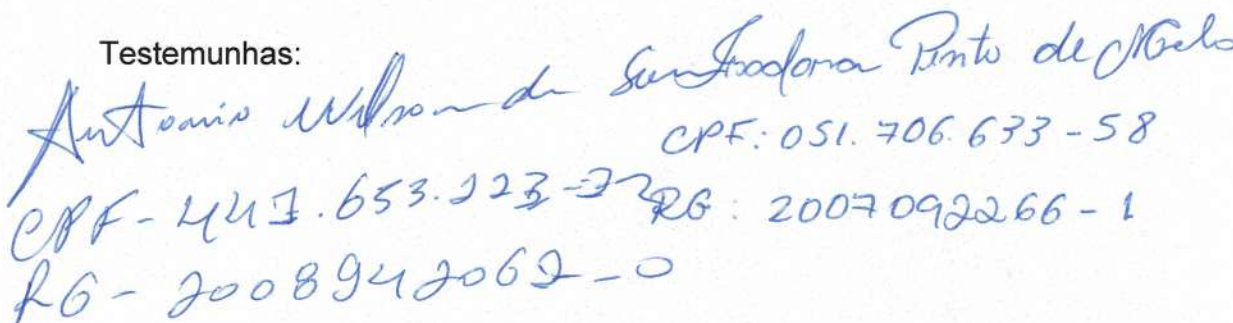 Testemunhas:
Antonio Wilson de
CPF - 441.653.223-
RG - 2008942062-0
Pinto de Melo
CPF: 051.706.633-58
RG: 2007092266-1